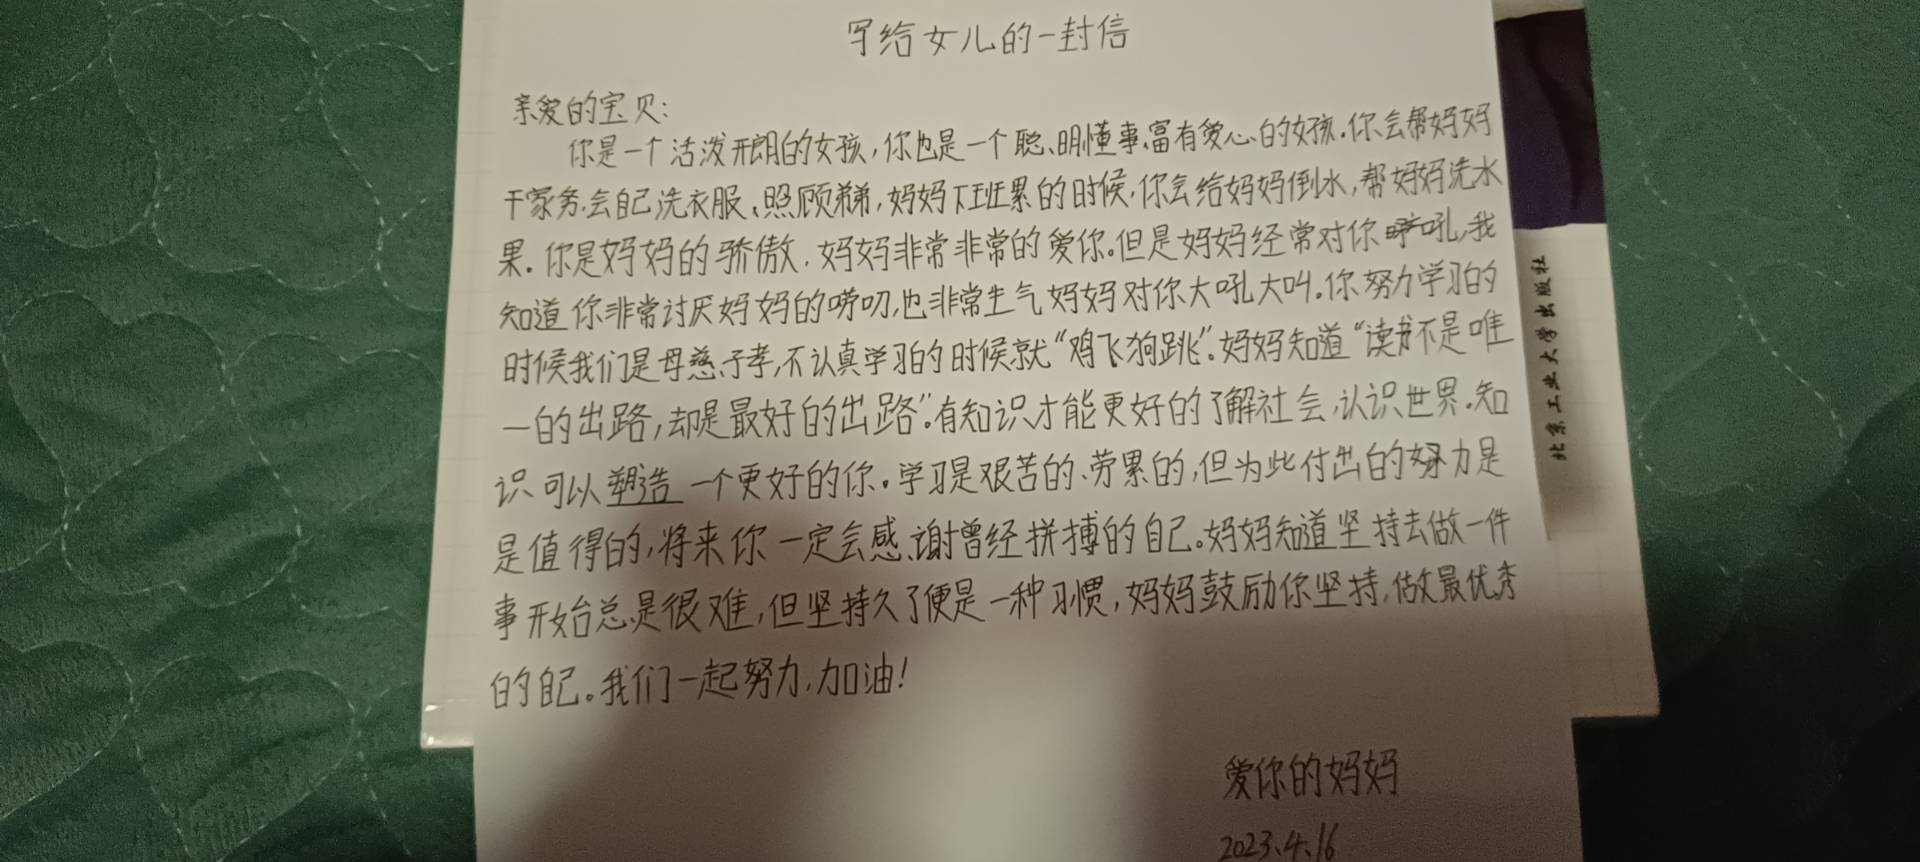 写给女儿的一封信
亲爱的宝贝：
你是一个活泼开朗的女孩，你也是一个聪明懂事、富有爱心的女孩。你会帮妈妈
干家务，会自己洗衣服、照顾弟弟，妈妈下班累的时候，你会给妈妈倒水，帮妈妈洗水
果。你是妈妈的骄傲，妈妈非常非常的爱你。但是妈妈经常对你吼，我
知道你非常讨厌妈妈的唠叨，也非常生气妈妈对你大吼大叫。你努力学习的
时候我们是母慈子孝，不认真学习的时候就“鸡飞狗跳”。妈妈知道“读书不是唯
一的出路，却是最好的出路”。有知识才能更好的了解社会，认识世界。知
识可以塑造一个更好的你。学习是艰苦的、劳累的，但为此付出的努力是
是值得的，将来你一定会感谢曾经拼搏的自己。妈妈知道坚持去做一件
事开始总是很难，但坚持久了便是一种习惯，妈妈鼓励你坚持，做最优秀
的自己。我们一起努力，加油！
爱你的妈妈
2023.4.16
北京工业大学出版社